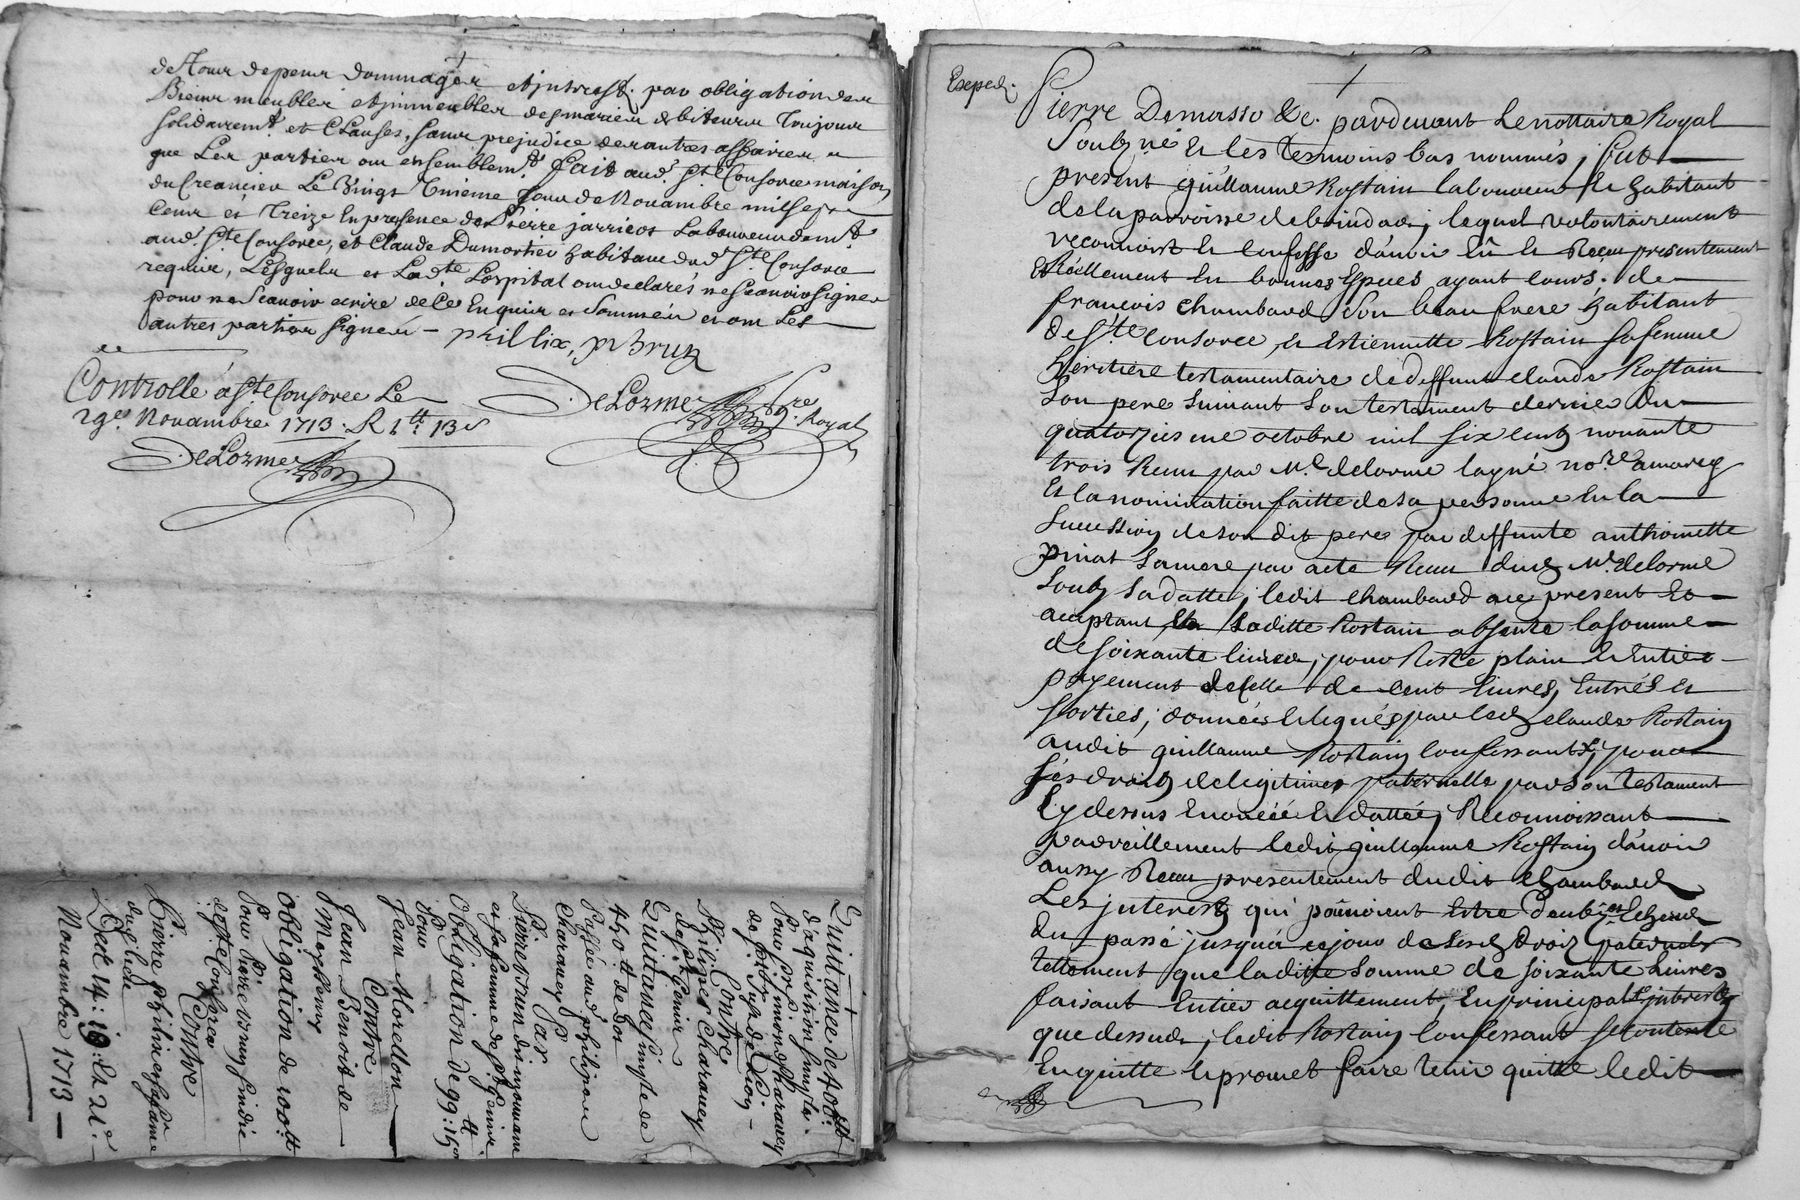 de tour depens dommages et jnterest. par obligation des
Biens meubles et jmmeubles des mariés debiteurs toujours
solidairemt. et Clauses, sans prejudice des autres affaires
que Les parties ont ensemblemt. fait aud. Ste Consorce maison
du Creancier Le Vingt jour de Nouambre mil sept
Cents et treize En presence de Pierre jarricot Laboureur demt.
aud. Ste Consorce, et Claude Dumortier habitant dud. Ste Consorce
requis, Lesquels et Ladte Lospital ont declarés ne scauoir signer
pour ne scauoir ecrire de Ce Enquis et Sommés et ont Les
autres parties signées - phillix, p Brun
Controllé a Ste Consorce Le
29e Nouambre 1713. R 1tt 13s
DeLorme
DeLorme Nre Royal
Quittance de
d'aquisition simple
Pour Sr. simon Charancy
de Lion -
Contre
Philipes Charancy
de St Genis
Quittance simple de
450 tt de dot
Passée aud. philipes
Charancy
Par
Pierre Brun du
et sa femme de St Genis
Obligation de 99tt: 15s
Pour
Jean Morellon
Contre
Jean Benoit de
Obligation de 100tt
Pour Pierre Brun sindic
de Ste Consorce
Contre
Pierre philix et sa feme
dud. lieu
Des 14: 19: et 21e
Nouambre 1713 -
Exped.
Pierre Demasso &c. pardeuant Le nottaire Royal
Soubz.né et les tesmoins bas nommés, fut
present guillaume Rostain laboureur et habitant
de la parroisse de brindas, lequel volontairement
reconnoit et confesse d'auoir Eû et Receu presentement
Et Réellement en bonnes Especes ayant cours. de
francois chambard son beau frere habitant
de Ste Consorce, et Estiennette Rostain sa femme
heritiere testamentaire de deffunt claude Rostain
son pere suiuant son testament dernier du
quatorzieme octobre mil six centz nonante
trois Receu par Me. delorme l'ayné no.re
Et la nomination faitte de sa personne En la
succession de son dit pere par deffunte anthoinette
pinat sa mere par acte Receu dud. Me. delorme
soubz sa datte, ledit chambard icy present Et
aceptant Et laditte Rostain absente la somme
de soixante liures, pour Reste plain et Entier
payement de Celle de cent liures, Entrés et
sorties, données et leguéz par led. claude Rostain
audit guillaume Rostain confessant, pour
sés droitz de legitimes paternelle par son testament
Cy dessus enoncéé et dattéé, Reconnoissant
pareillement ledit guillaume Rostain d'auoir
aussy Receu presentement dudit chambard
Les jnterestz qui pouuoient Estre deubz
du passé jusqu'a ce jour de sesd. droitz paternels
tellement que laditte somme de soixante Liures
faisant Entier acquittement, En principal et jnterestz
que dessus, ledit Rostain confessant se contente
En quitte et promet faire tenir quitte ledit